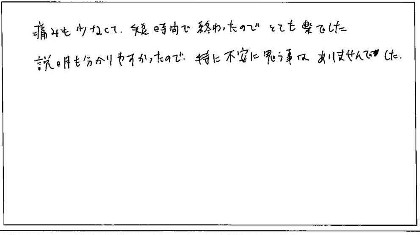 痛みも少なくて、短時間で終わったのでとても楽でした
説明も分かりやすかったので、特に不安に思う事はありませんでした。